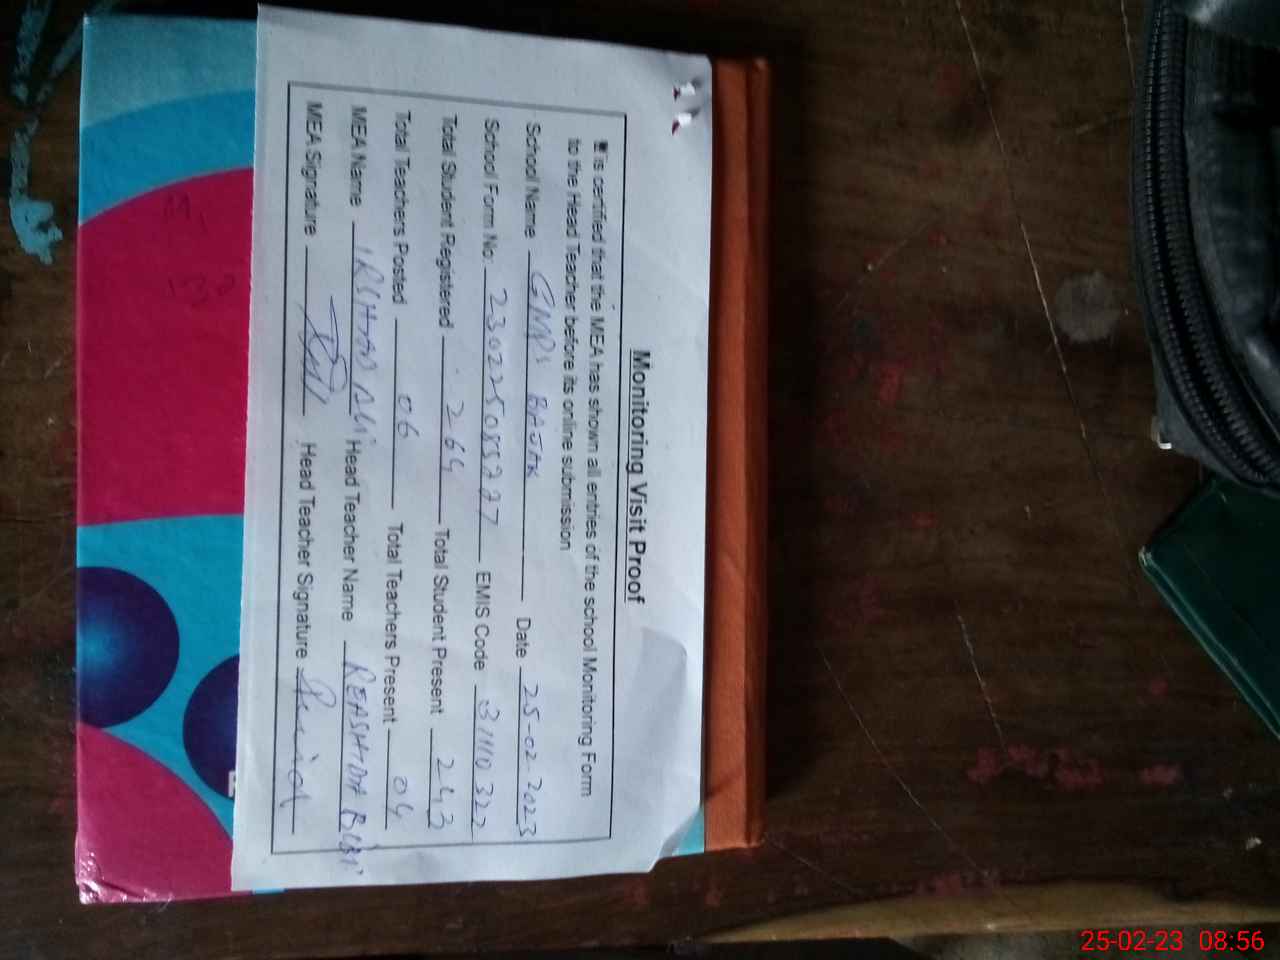 Monitoring Visit Proof
It is certified that the MEA has shown all entries of the school Monitoring Form
to the Head Teacher before its online submission
School Name GMPS Date 25-02-2023
School Form No: EMIS Code 31110322
Total Student Registered 264 Total Student Present 243
Total Teachers Posted 06 Total Teachers Present 04
MEA Name IRSHAD ALI Head Teacher Name REASHIDA BIBI
MEA Signature Head Teacher Signature
25-02-23 08:56